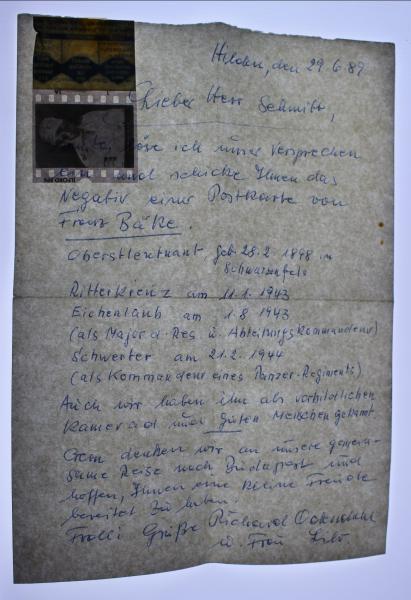 Hilden, den 29.6.89
Lieber Herr Schmitt,
heute löse ich unser Versprechen
ein und schicke Ihnen das
Negativ einer Postkarte von
Franz Bäke.
Oberstleutnant geb. 28.2.1898 in
Schwarzenfels
Ritterkreuz am 11.1.1943
Eichenlaub am 1.8.1943
(als Major d. Res. u. Abteilungskommandeur)
Schwerter am 21.2.1944
(als Kommandeur eines Panzer-Regiments)
Auch wir haben ihn als vorbildlichen
Kamerad und guten Menschen gekannt.
Gern denken wir an unsere gemein-
same Reise nach Budapest und
hoffen, Ihnen eine kleine Freude
bereitet zu haben.
Grüße Richard
u. Frau